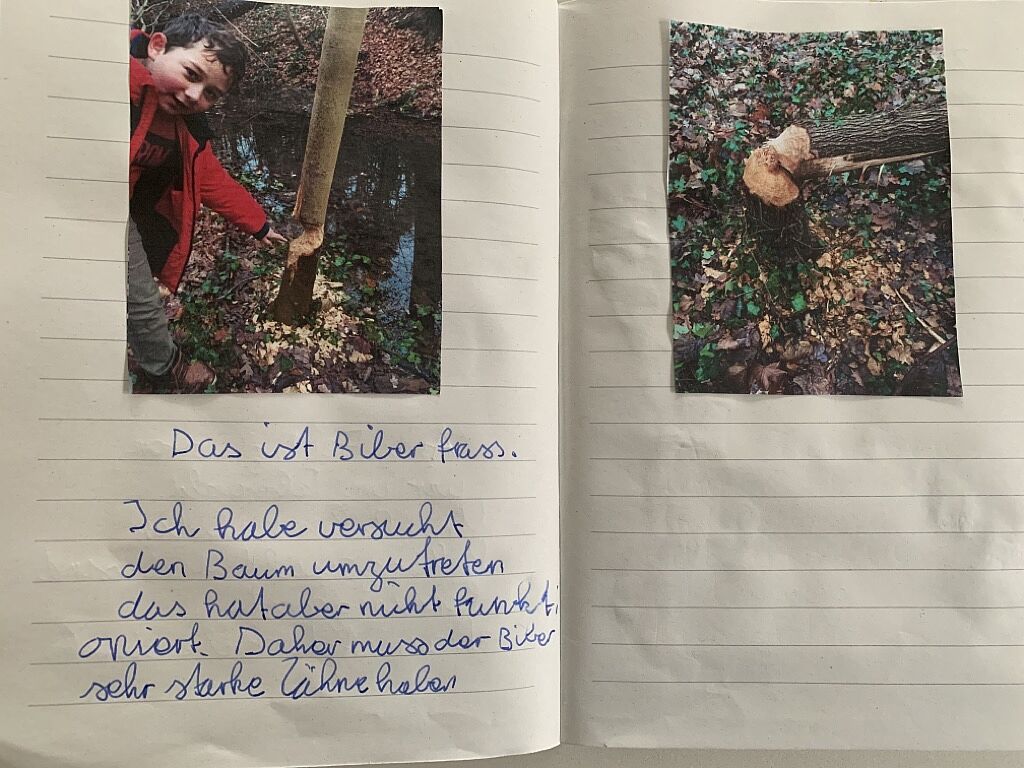 Das ist Biber frass.
Ich habe versucht
den Baum umzutreten
das hat aber nicht funkti
oniert. Daher muss der Biber
sehr starke Zähne haben